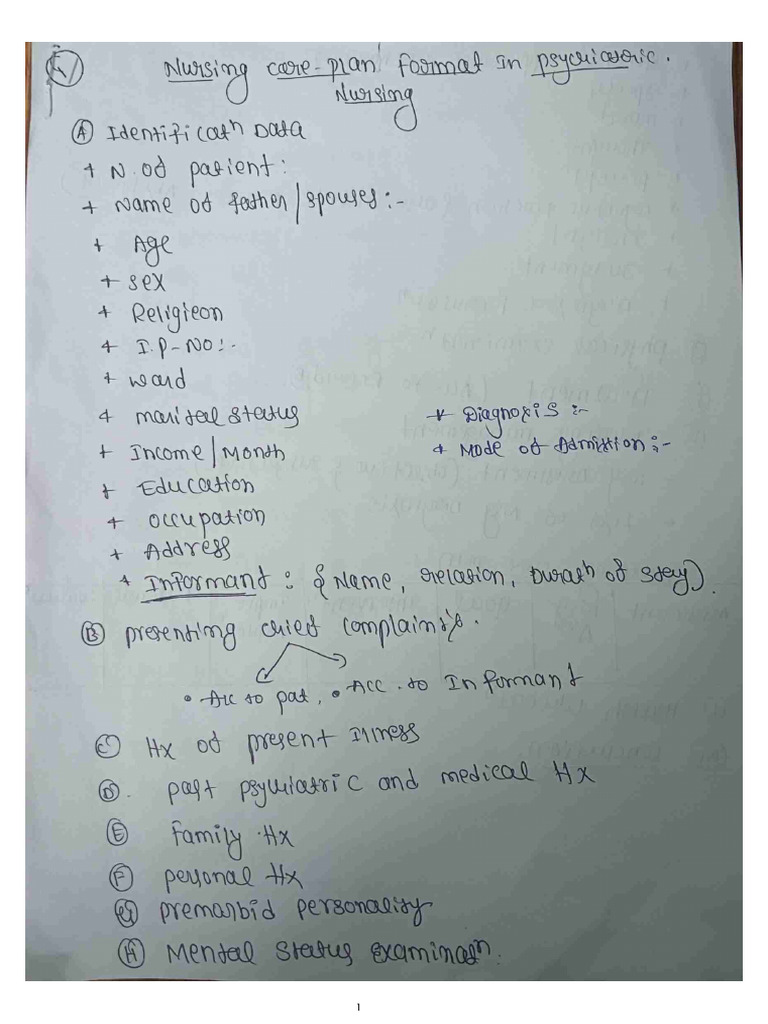 Nursing care-plan format in psychiatric.
Nursing
(A) Identificatn Data
+ N. of patient:
+ Name of father/spouses:-
+ Age
+ Sex
+ Religieon
+ I.P-NO:-
+ Ward
+ Marital status
* Diagnoxis:-
+ Income/Month
+ Mode of Admittion:-
+ Education
+ Occupation
+ Address
+ Informant: { Name, relation, Duratn of stay).
(B) presenting chief complaints.
• Acc to pat, • Acc. to Informant
(C) Hx of present Illness
(D). past psychiatric and medical Hx
(E) family Hx
(F) personal Hx
(G) premarbid personality
(H) Mental status examinatn.
1